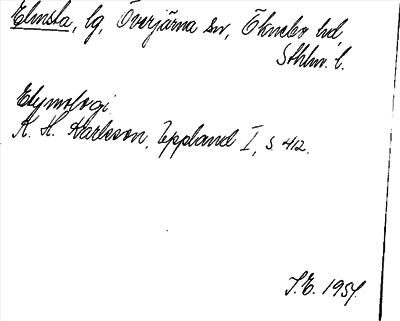 Elmsta, lg, Överjärna sn, Öknebo hd
Sthlm. l.
Etymologi
K. H. Karlsson, Uppland I, s. 412.
S.E. 1951.